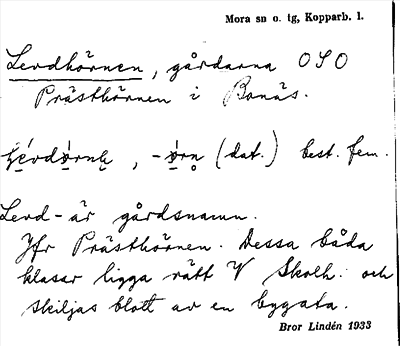 Mora sn o. tg, Kopparb. l.
Lerdhörnen, gårdarna OSO
Prästhörnen i Bonäs.
, -ǫ́rn̥ (dat.) best. fem.
Lerd- är gårdsnamn.
Jfr Prästhörnen. Dessa båda
klasar ligga rätt V Skolh. och
skiljas blott av en bygata.
Bror Lindén 1933